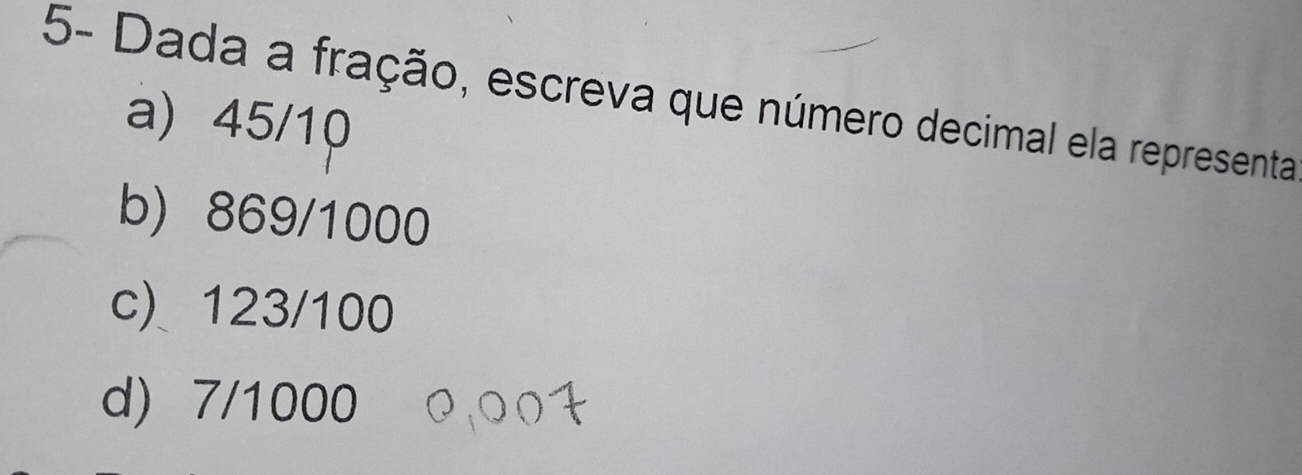 5- Dada a fração, escreva que número decimal ela representa:
a) 45/10
b) 869/1000
c) 123/100
d) 7/1000 0,007